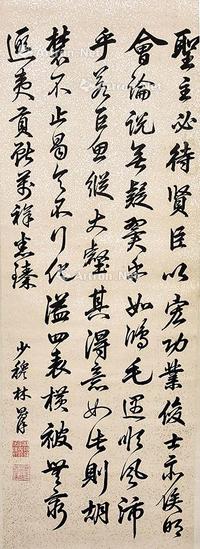 聖主必待賢臣以宏功業俊士亦俟明
會論說無疑翼乎如鴻毛遇順風沛
乎若巨魚縱大壑其得意如此則胡
禁不止曷令不行化溢四表橫被無窮
遐夷貢獻萬祥悉臻
少穆林則徐